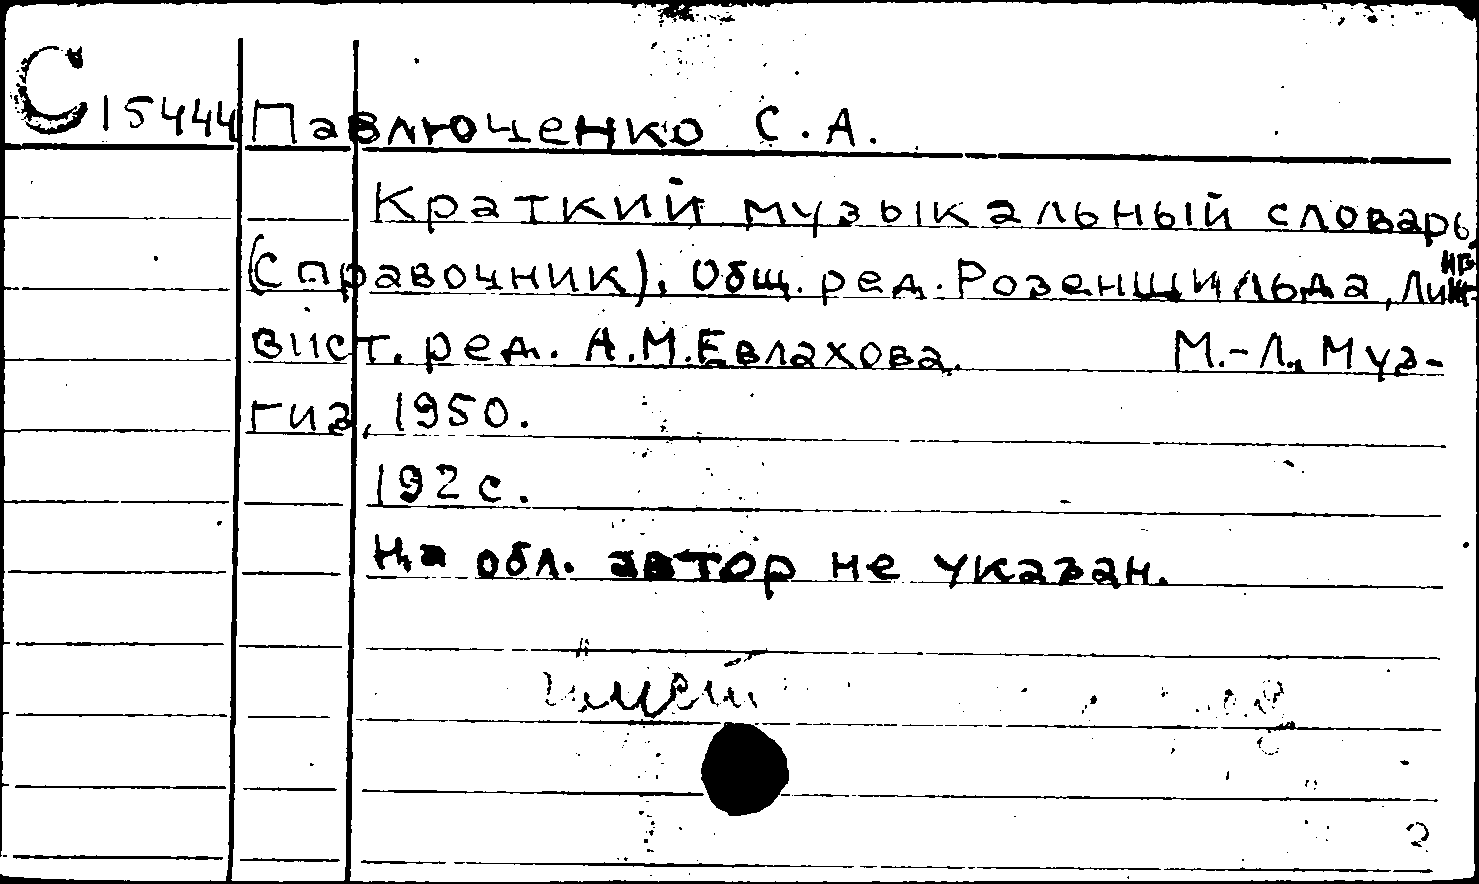 С 15444 Павлюченко С.А.
Краткий музыкальный словарь
(Справочник). Общ. ред. Розенщильда, Линг-
вист. ред. А.М.Евлахова. М.-Л., Муз-
гиз, 1950.
192 с.
На обл. автор не указан.
2